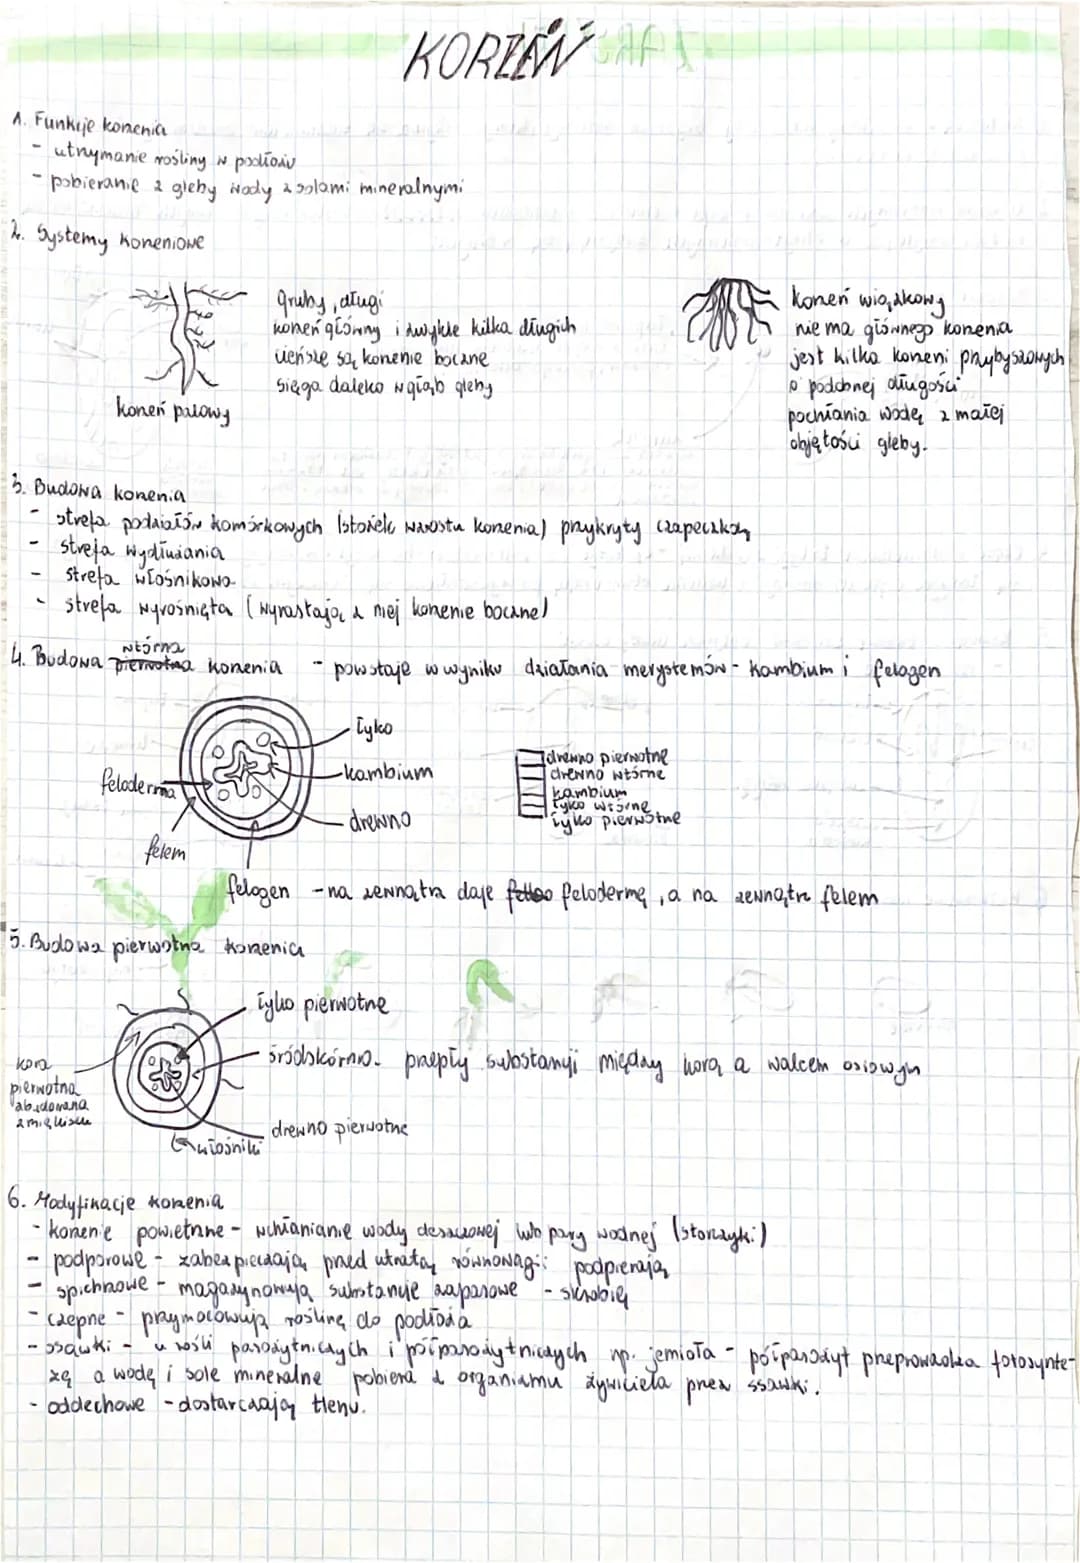 KORZEŃ
1. Funkcje korzenia
- utrzymanie rośliny w podłożu
- pobieranie z gleby wody z solami mineralnymi
2. Systemy korzeniowe
gruby, długi
korzeń główny i zwykle kilka długich
cieńsze są korzenie boczne
sięga daleko w głąb gleby
korzeń palowy
korzeń wiązkowy
nie ma głównego korzenia
jest kilka korzeni przybyszowych
o podobnej długości
pochłania wodę z małej
objętości gleby.
3. Budowa korzenia
- strefa podziałów komórkowych (stożek wzrostu korzenia) przykryty czapeczką
- strefa wydłużania
- strefa włośnikowa
- strefa wyrośnięta (wyrastają z niej korzenie boczne)
wtórna
4. Budowa pierwotna korzenia - powstaje w wyniku działania merystemów - kambium i felogen
łyko
kambium
drewno
feloderma
felem
drewno pierwotne
drewno wtórne
kambium
łyko wtórne
łyko pierwotne
felogen - na zewnątrz daje felodermę, a na zewnątrz felem
5. Budowa pierwotna korzenia
łyko pierwotne
śródskórnia - przepły substancji między korą a walcem osiowym
kora
pierwotna
zbudowana
z miękiszu
drewno pierwotne
włośniki
6. Modyfikacje korzenia
- korzenie powietrzne - wchłanianie wody deszczowej lub pary wodnej (storczyki)
- podporowe - zabezpieczają przed utratą równowagi: podpierają
- spichrzowe - magazynowują substancje zapasowe - skrobię
- czepne - przymocowują roślinę do podłoża
- ssawki - u rośli pasożytniczych i półpasożytniczych np. jemioła - półpasożyt przeprowadza fotosynte-
zę a wodę i sole mineralne pobiera z organizmu żywiciela przez ssawki.
- oddechowe - dostarczają tlenu.